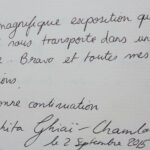 magnifique exposition qu
nous transporte dans un
. Bravo et toutes mes
ions.
nne continuation
hita Ghiaï-Chamlou
le 2 Septembre 2015